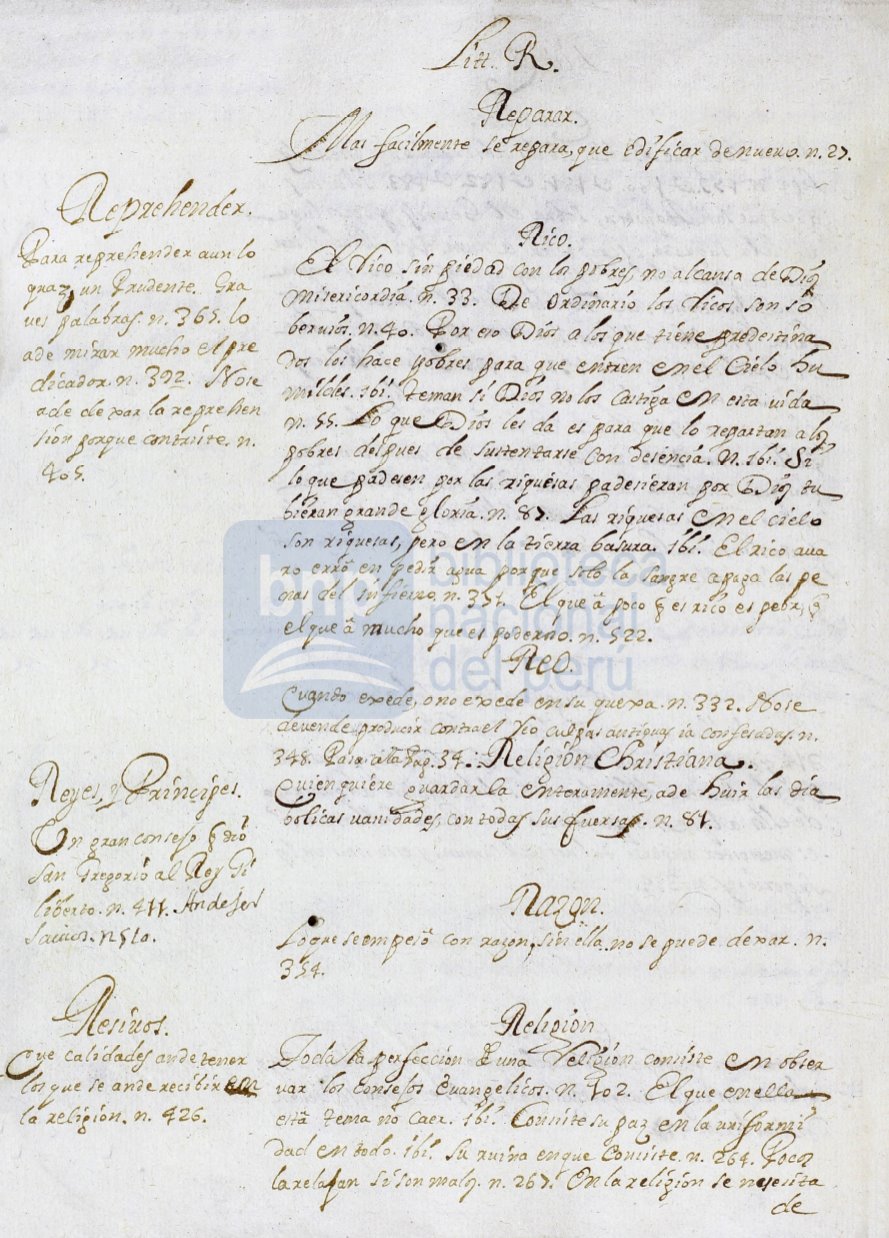 Litt. R.
Reparar.
Mas facilmente se repara, que edificar de nuevo. n. 27.
Reprehender.
Para reprehender aun lo
quaz, un Prudente. Gra
ves palabras. n. 365. lo
a de mirar mucho el pre
dicador. n. 392. No se
a de dexar la reprehen
sion porque contriste. n.
405.
Rico.
El Rico sin piedad con los pobres, no alcansa de Dios
Misericordia. n. 33. De Ordinario los Ricos son so
bervios. n. 40. Por eso Dios a los que tiene predestina
dos los hace pobres para que entren en el Cielo hu
mildes. ibi. teman si Dios no los Castiga en esta vida
n. 55. Lo que Dios les da es para que lo repartan a los
pobres despues de sustentarse con desencia. n. ibi. Si
lo que padesen por las riquesas padesieran por Dios tu
bieran grande gloria. n. 87. Las riquesas en el cielo
son riquesas, pero en la tierra basura. ibi. El rico ava
ro erró en pedir agua porque solo la sangre apaga las pe
nas del infierno. n. 351. El que a poco q es rico es pobre, y
el que a mucho que es poderoso. n. 522.
Reo.
Cuando exede, o no exede en su quexa. n. 332. No se
deven de producir contra el reo culpas antiguas ia confesadas. n.
348. Pasa a la Pag. 34.
Religion Christiana.
Quien quiere guardarla enteramente, a de huir las dia
bolicas vanidades, con todas sus fuersas. n. 81.
Reyes, y Principes.
Un gran consejo q dio
san Gregorio al Rey
liberto. n. 411. An de ser
Savios. n. 510.
Razon.
Lo que se empesó con razon, sin ella no se puede dexar. n.
354.
Resivos.
Que calidades an de tener
los que se an de recibir en
la religion. n. 426.
Religion
Toda la perfeccion de una Religion consiste en obser
var los Consejos Evangelicos. n. 402. El que en ella
está tema no caer. ibi. Consiste su paz en la uniformi
dad en todo. ibi. su ruina en que Consiste. n. 264. Pocos
la relajan si son malos. n. 267. En la religion se nesesita
de
bnp biblioteca
nacional
del perú